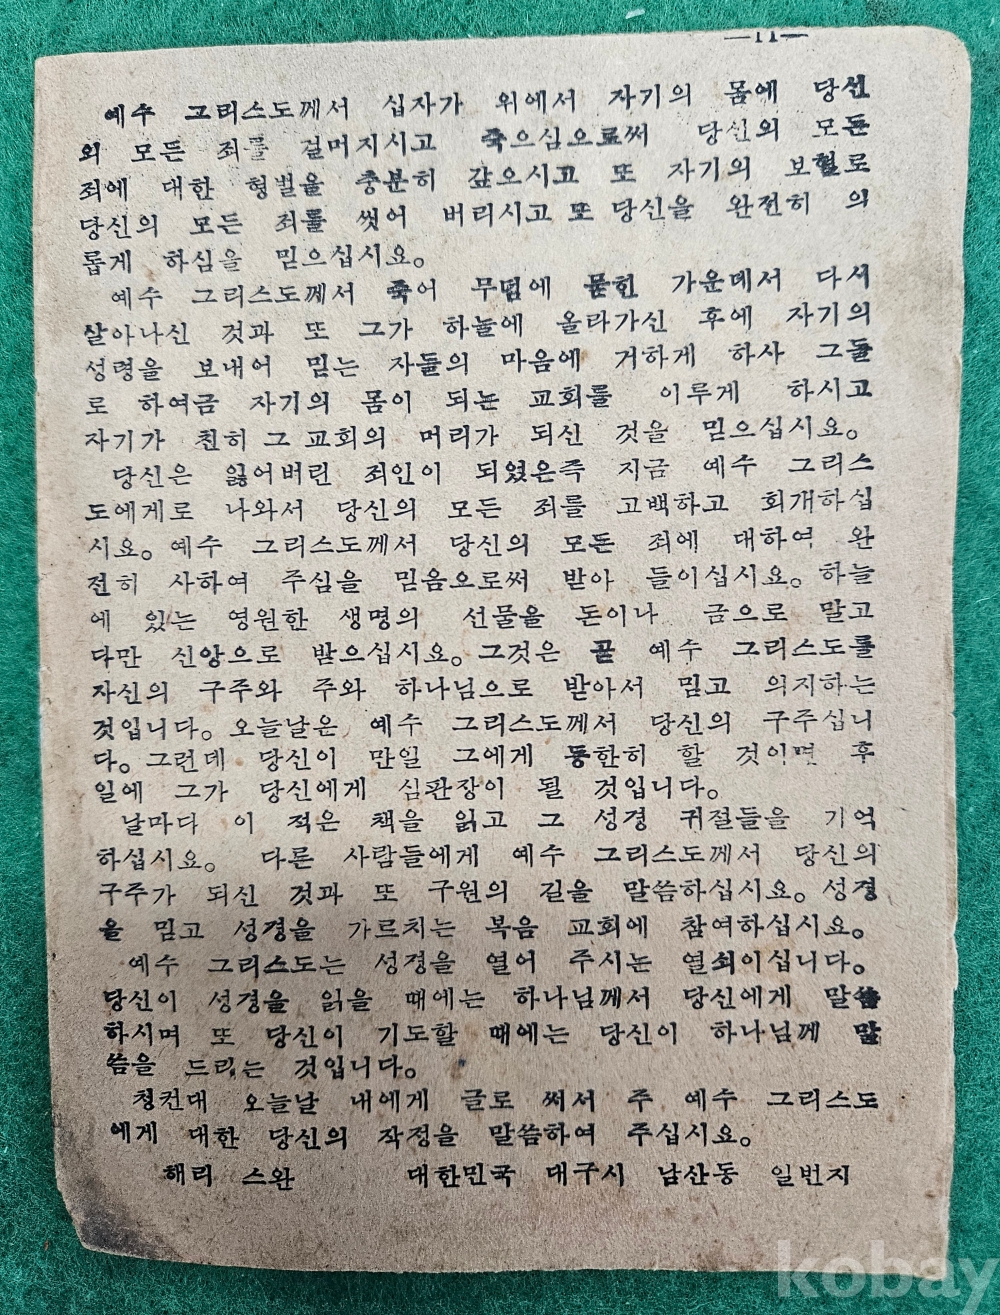 —11—
예수 그리스도께서 십자가 위에서 자기의 몸에 당신
의 모든 죄를 걸머지시고 죽으심으로써 당신의 모든
죄에 대한 형벌을 충분히 갚으시고 또 자기의 보혈로
당신의 모든 죄를 씻어 버리시고 또 당신을 완전히 의
롭게 하심을 믿으십시요。
예수 그리스도께서 죽어 무덤에 묻힌 가운데서 다시
살아나신 것과 또 그가 하늘에 올라가신 후에 자기의
성령을 보내어 믿는 자들의 마음에 거하게 하사 그들
로 하여금 자기의 몸이 되는 교회를 이루게 하시고
자기가 친히 그 교회의 머리가 되신 것을 믿으십시요。
당신은 잃어버린 죄인이 되였은즉 지금 예수 그리스
도에게로 나와서 당신의 모든 죄를 고백하고 회개하십
시요。예수 그리스도께서 당신의 모든 죄에 대하여 완
전히 사하여 주심을 믿음으로써 받아 들이십시요。하늘
에 있는 영원한 생명의 선물을 돈이나 금으로 말고
다만 신앙으로 받으십시요。그것은 곧 예수 그리스도를
자신의 구주와 주와 하나님으로 받아서 믿고 의지하는
것입니다。오늘날은 예수 그리스도께서 당신의 구주십니
다。그런데 당신이 만일 그에게 등한히 할 것이면 후
일에 그가 당신에게 심판장이 될 것입니다。
날마다 이 적은 책을 읽고 그 성경 귀절들을 기억
하십시요。 다른 사람들에게 예수 그리스도께서 당신의
구주가 되신 것과 또 구원의 길을 말씀하십시요。성경
을 믿고 성경을 가르치는 복음 교회에 참여하십시요。
예수 그리스도는 성경을 열어 주시는 열쇠이십니다。
당신이 성경을 읽을 때에는 하나님께서 당신에게 말씀
하시며 또 당신이 기도할 때에는 당신이 하나님께 말
씀을 드리는 것입니다。
청컨대 오늘날 내에게 글로 써서 주 예수 그리스도
에게 대한 당신의 작정을 말씀하여 주십시요。
해리 스완 대한민국 대구시 남산동 일번지
kobay